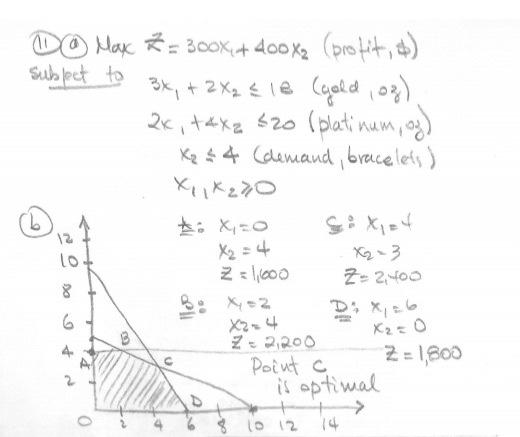 11) a) Max Z = 300x₁ + 400x₂ (profit, $)
subject to
3x₁ + 2x₂ ≤ 18 (gold, oz)
2x₁ + 4x₂ ≤ 20 (platinum, oz)
x₂ ≤ 4 (demand, bracelets)
x₁, x₂ ≥ 0
b)
A: x₁ = 0
x₂ = 4
Z = 1,600
B: x₁ = 2
x₂ = 4
Z = 2,200
C: x₁ = 4
x₂ = 3
Z = 2,400
D: x₁ = 6
x₂ = 0
Z = 1,800
Point C
is optimal
12
10
8
6
4
2
A
B
C
D
0 2 4 6 8 10 12 14